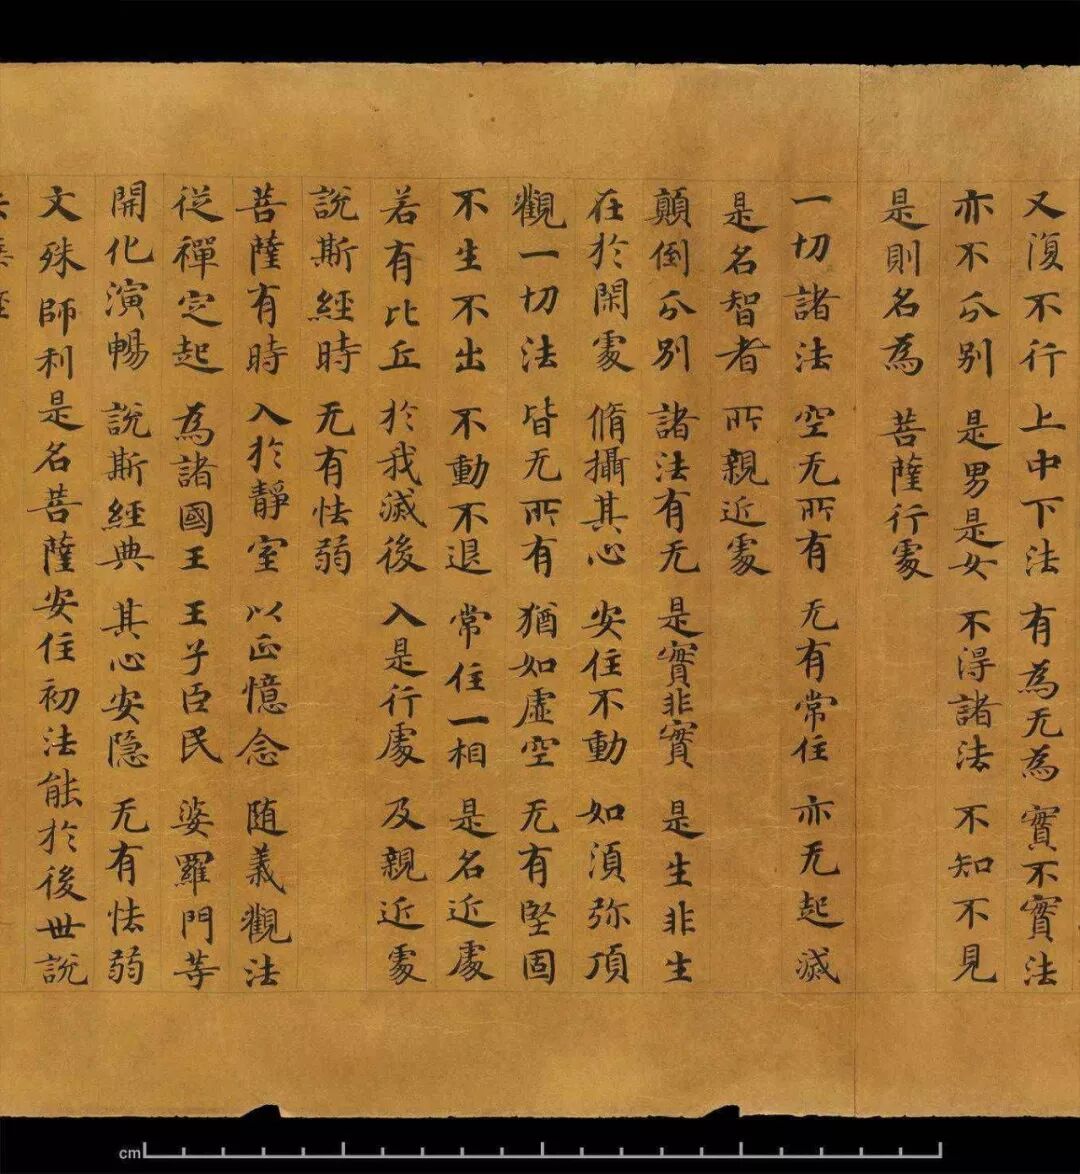 又復不行 上中下法 有為无為 實不實法
亦不分別 是男是女 不得諸法 不知不見
是則名為 菩薩行處
一切諸法 空无所有 无有常住 亦无起滅
是名智者 所親近處
顛倒分別 諸法有无 是實非實 是生非生
在於閑處 脩攝其心 安住不動 如須弥頂
觀一切法 皆无所有 猶如虛空 无有堅固
不生不出 不動不退 常住一相 是名近處
若有比丘 於我滅後 入是行處 及親近處
說斯經時 无有怯弱
菩薩有時 入於靜室 以正憶念 随義觀法
從禪定起 為諸國王 王子臣民 婆羅門等
開化演暢 說斯經典 其心安隱 无有怯弱
文殊師利是名菩薩安住初法能於後世說
cm